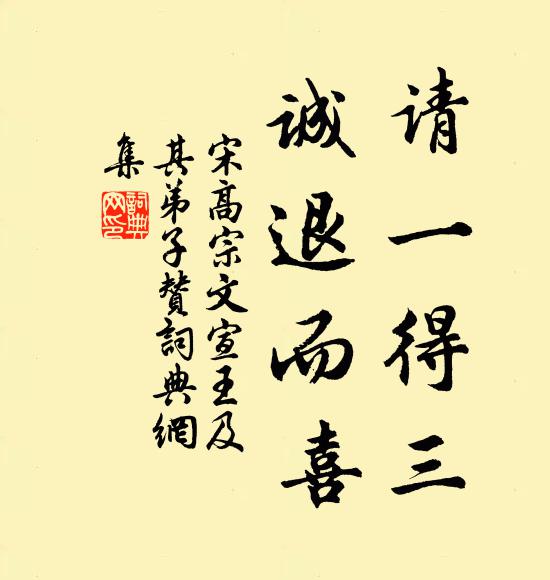 请一得三
诚退而喜
宋高宗文宣王及
其弟子赞词典網
集
詞典
网印